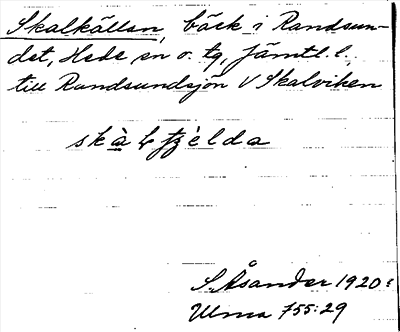 Skalkällan, bäck i Randsun-
det, Hede sn o. tg, Jämtl. l.,
till Randsundsjön V Skalviken
S. Åsander 1920:
Ulma 755:29